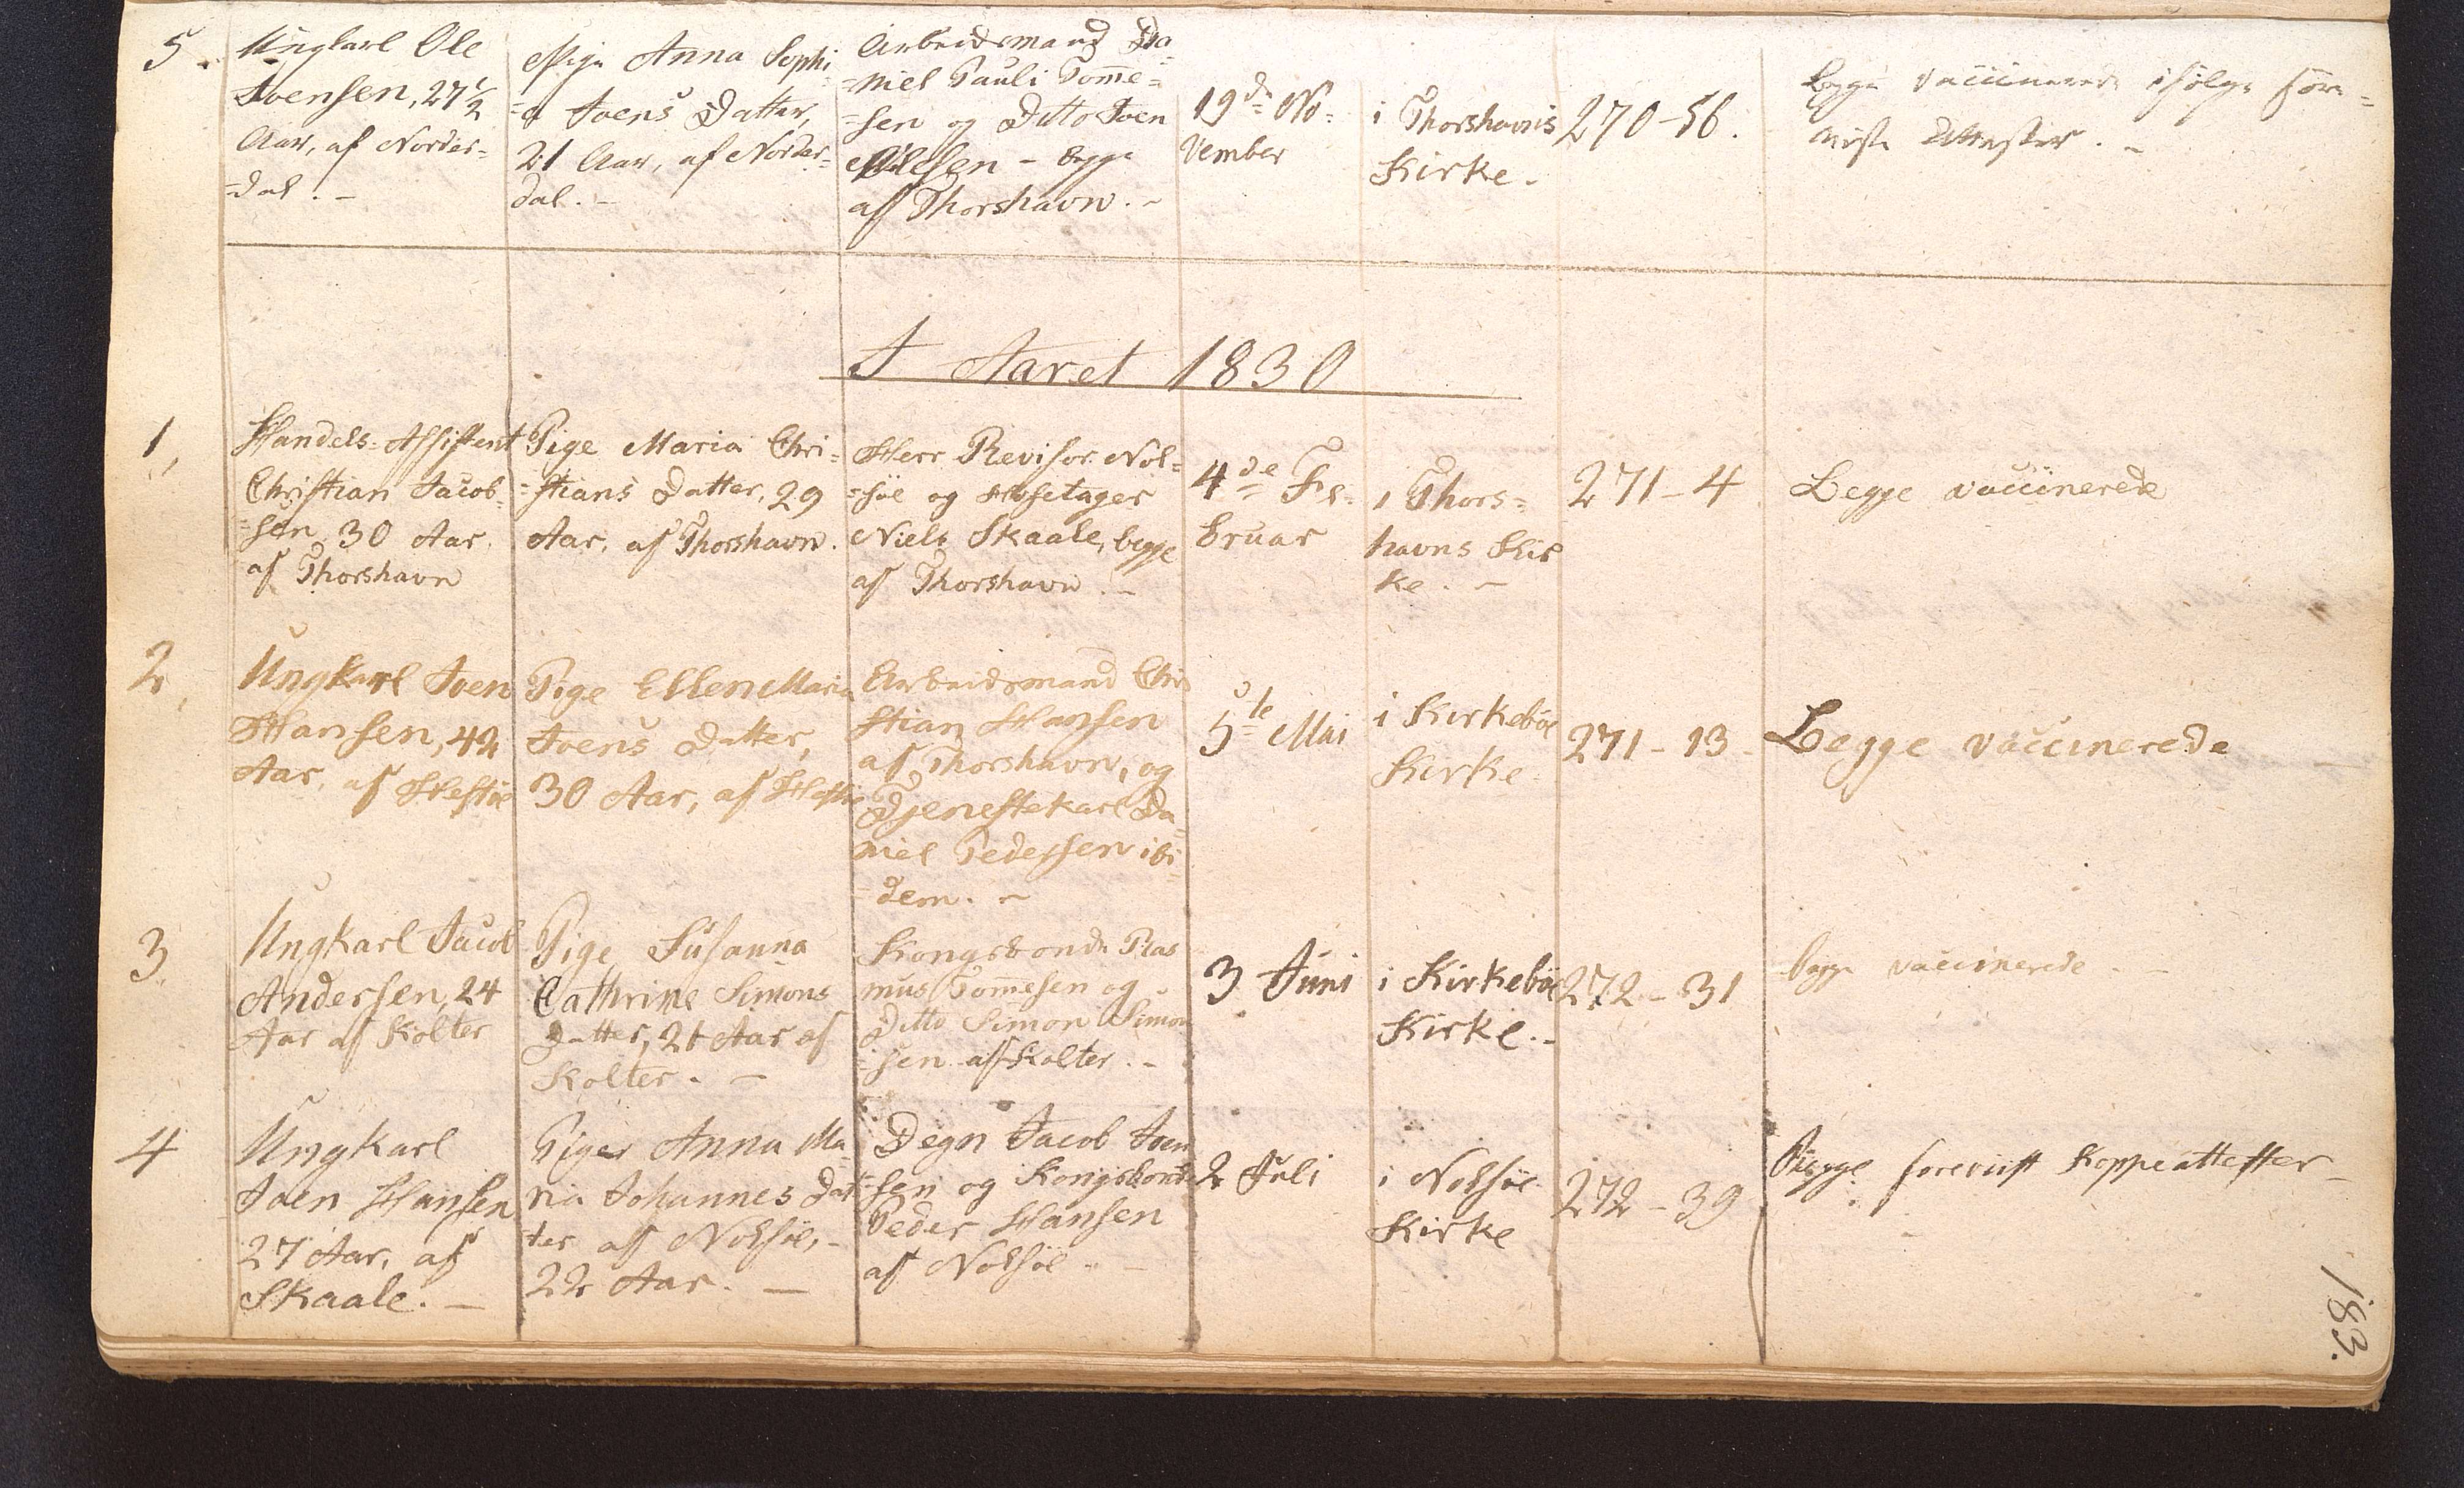 5.
Ungkarl Ole
Joensen, 27 1/2
Aar, af Norder=
=dal. -
Pige Anna Sophi
=a Joens Datter,
21 Aar, af Norder=
dal. -
Arbeidsmand Da
=niel Pauli Tom̄e=
=sen og Ditto Joen
Olesen - begge
af Thorshavn. -
19de No=
vember
i Thorshavns
Kirke.
270-56.
begge vaccinerede ifølge fore=
viste Attester. -
I Aaret 1830
1,
Handels-Assistent
Christian Jacob=
=sen, 30 Aar.
af Thorshavn
Pige Maria Chri=
=stians Datter, 29
Aar, af Thorshavn.
Herr Revisor Nol=
=söe og Hosetager
Niels Skaale, begge
af Thorshavn. -
4de Fe=
bruar
i Thors=
havns Kir
ke. -
271-4
Begge vaccinerede
2,
Ungkarl Joen
Hansen, 42
Aar, af Hestöe
Pige Ellen Maria
Joens Datter,
30 Aar, af Hestöe
Arbeidsmand Chri
stian Hansen
af Thorshavn, og
Tjenestekarl Da=
niel Pedersen ibi=
=dem. -
5te Mai
i Kirkeböe
Kirke.
271-13.
Begge vaccinerede
3.
Ungkarl Jacob
Andersen, 24
Aar af Kolter
Pige Susanna
Cathrine Simons
Datter, 21 Aar af
Kolter. -
Kongsbonde Ras
mus Tom̄esen og
Ditto Simon Simon
=sen af Kolter. -
3 Juni
i Kirkeböe
Kirke. -
272-31
begge vaccinerede. -
4
Ungkarl
Joen Hansen
27 Aar, af
Skaale. -
Piger Anna Ma=
ria Johannes Dat
=ter af Nolsöe, -
22 Aar. -
Degn Jacob Joen
=sen og Kongsbonde
Peder Hansen
af Nolsöe. -
2 Juli
i Nolsöe
Kirke
272-39
Begge foreviist Koppeattester
183.